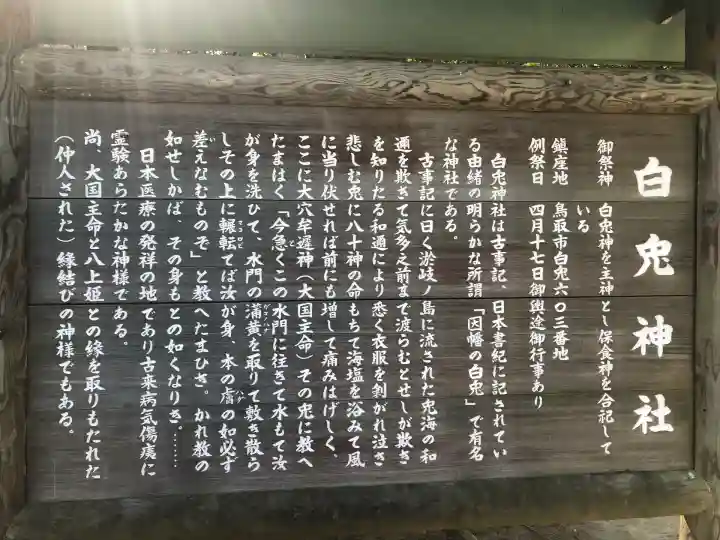 白兎神社
御祭神　白兎神を主神とし保食神を合祀して
いる
鎮座地　鳥取市白兎六〇三番地
例祭日　四月十七日御輿途御行事あり
白兎神社は古事記、日本書紀に記されてい
る由緒の明らかな所謂「因幡の白兎」で有名
な神社である。
古事記に曰く淤岐ノ島に流された兎海の和
邇を欺きて気多之前まで渡らむとせしが欺き
を知りたる和邇により悉く衣服を剥がれ泣き
悲しむ兎に八十神の命もちて海塩を浴みて風
に当り伏せれば前にも増して痛みはげしく、
ここに大穴牟遅神（大国主命）その兎に教へ
たまはく「今急くこの水門に往きて水もて汝
が身を洗ひて、水門の蒲黄を取りて敷き散ら
しその上に輾転てば汝が身、本の膚の如必ず
差えなむものぞ」と教へたまひき。かれ教の
如せしかば、その身もとの如くなりき。……
日本医療の発祥の地であり古来病気傷痍に
霊験あらたかな神様である。
尚　大国主命と八上姫との縁を取りもたれた
（仲人された）縁結びの神様でもある。